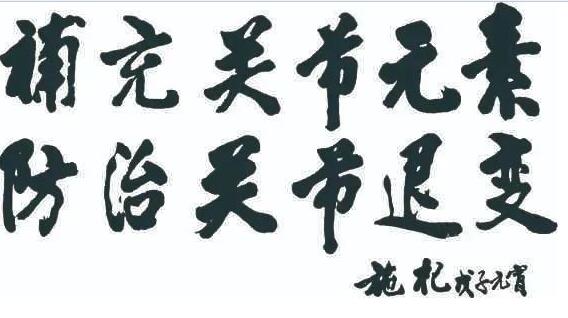 补充关节元素
防治关节退变
施杞戊子元宵